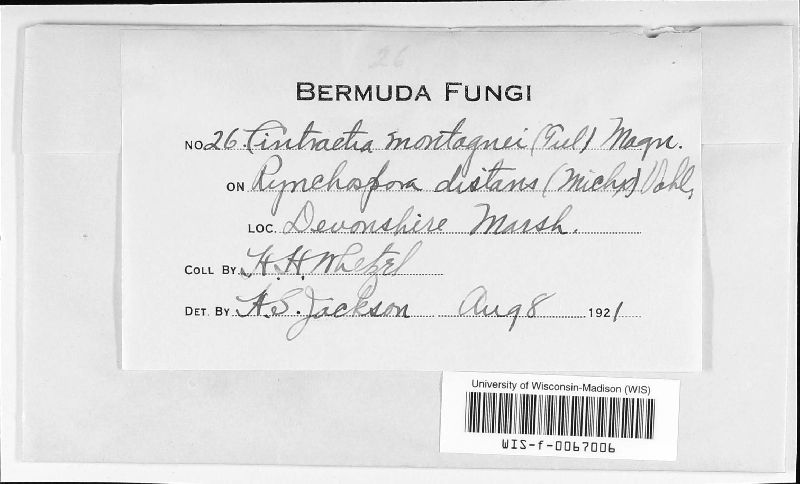 26
BERMUDA FUNGI
NO. 26 Cintractia montagnei (Tul) Magn.
ON Rynchospora distans (Michx) Vahl,
LOC. Devonshire Marsh.
COLL BY. H. H. Whetzel
DET. BY H. S. Jackson Aug 8 1921
University of Wisconsin-Madison (WIS)
WIS-f-0067006